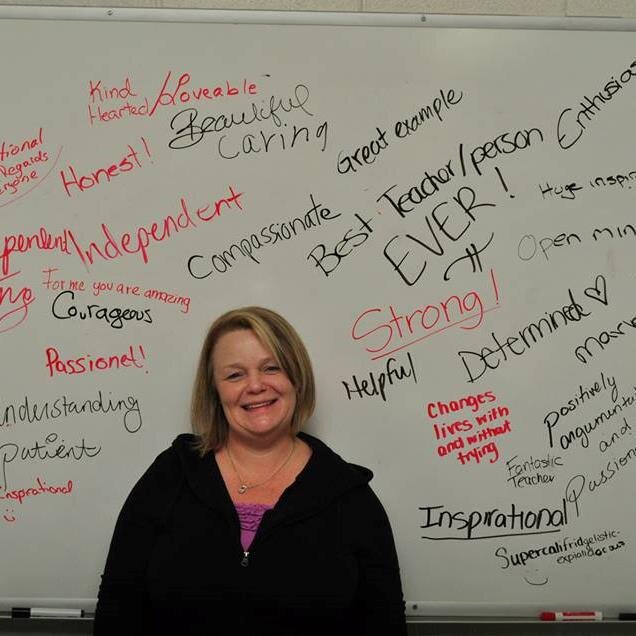 Kind
Hearted/Loveable
Beautiful
Caring
Great example
Enthusias
tional
Regards
eryone
Honest!
Best Teacher/person
EVER!
Huge inspir
ependent
Independent
Compassionate
Open min
For me you are amazing
Courageous
Strong!
Determined
Passionet!
Helpful
understanding
Changes
lives with
and without
trying
Positively
argumentat
and
Passion
Patient
Fantastic
Teacher
Inspirational
Inspirational
Supercalifridgelistic-
expialidocous